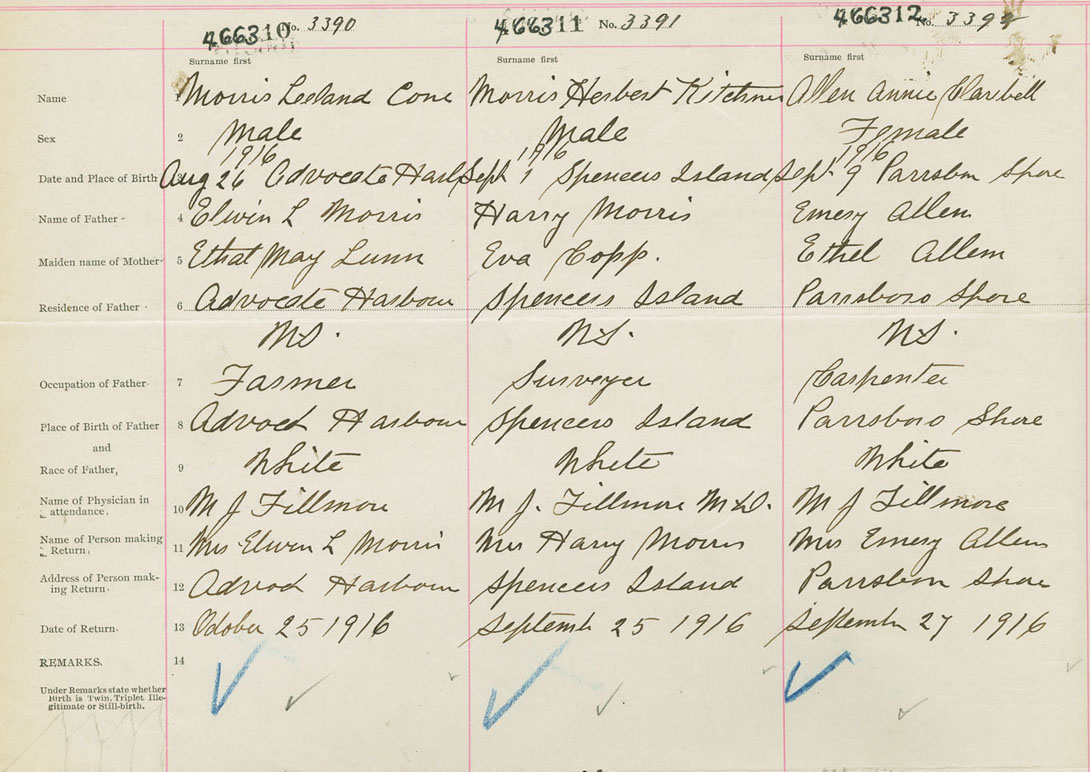 466310 No. 3390 466311 No. 3391 466312 No. 339
Surname first Surname first Surname first
Name 1 Morris Leeland Cone Morris Herbert Kitchner Allen Annie Claribell
Sex 2 Male Male Female
1916 1916 1916
Date and Place of Birth 3 Aug 26 Advocate Harb Sept 1 Spencers Island Sept 9 Parrsboro Shore
Name of Father 4 Elwin L Morris Harry Morris Emery Allen
Maiden name of Mother 5 Ethat May Lunn Eva Copp. Ethel Allen
Residence of Father 6 Advocate Harbour Spencers Island Parrsboro Shore
NS. NS. NS.
Occupation of Father 7 Farmer Surveyer Carpenter
Place of Birth of Father 8 Advoct Harbour Spencers Island Parrsboro Shore
and
Race of Father, 9 White White White
Name of Physician in
attendance, 10 M J Fillmore M J. Fillmore M.D. M J Fillmore
Name of Person making
Return, 11 Mrs Elwin L Morris Mrs Harry Morris Mrs Emery Allen
Address of Person mak-
ing Return 12 Advoct Harbour Spencers Island Parrsboro Shore
Date of Return. 13 October 25 1916 Septemb 25 1916 September 27 1916
REMARKS. 14
Under Remarks state whether
Birth is Twin, Triplet, Ille-
gitimate or Still-birth.